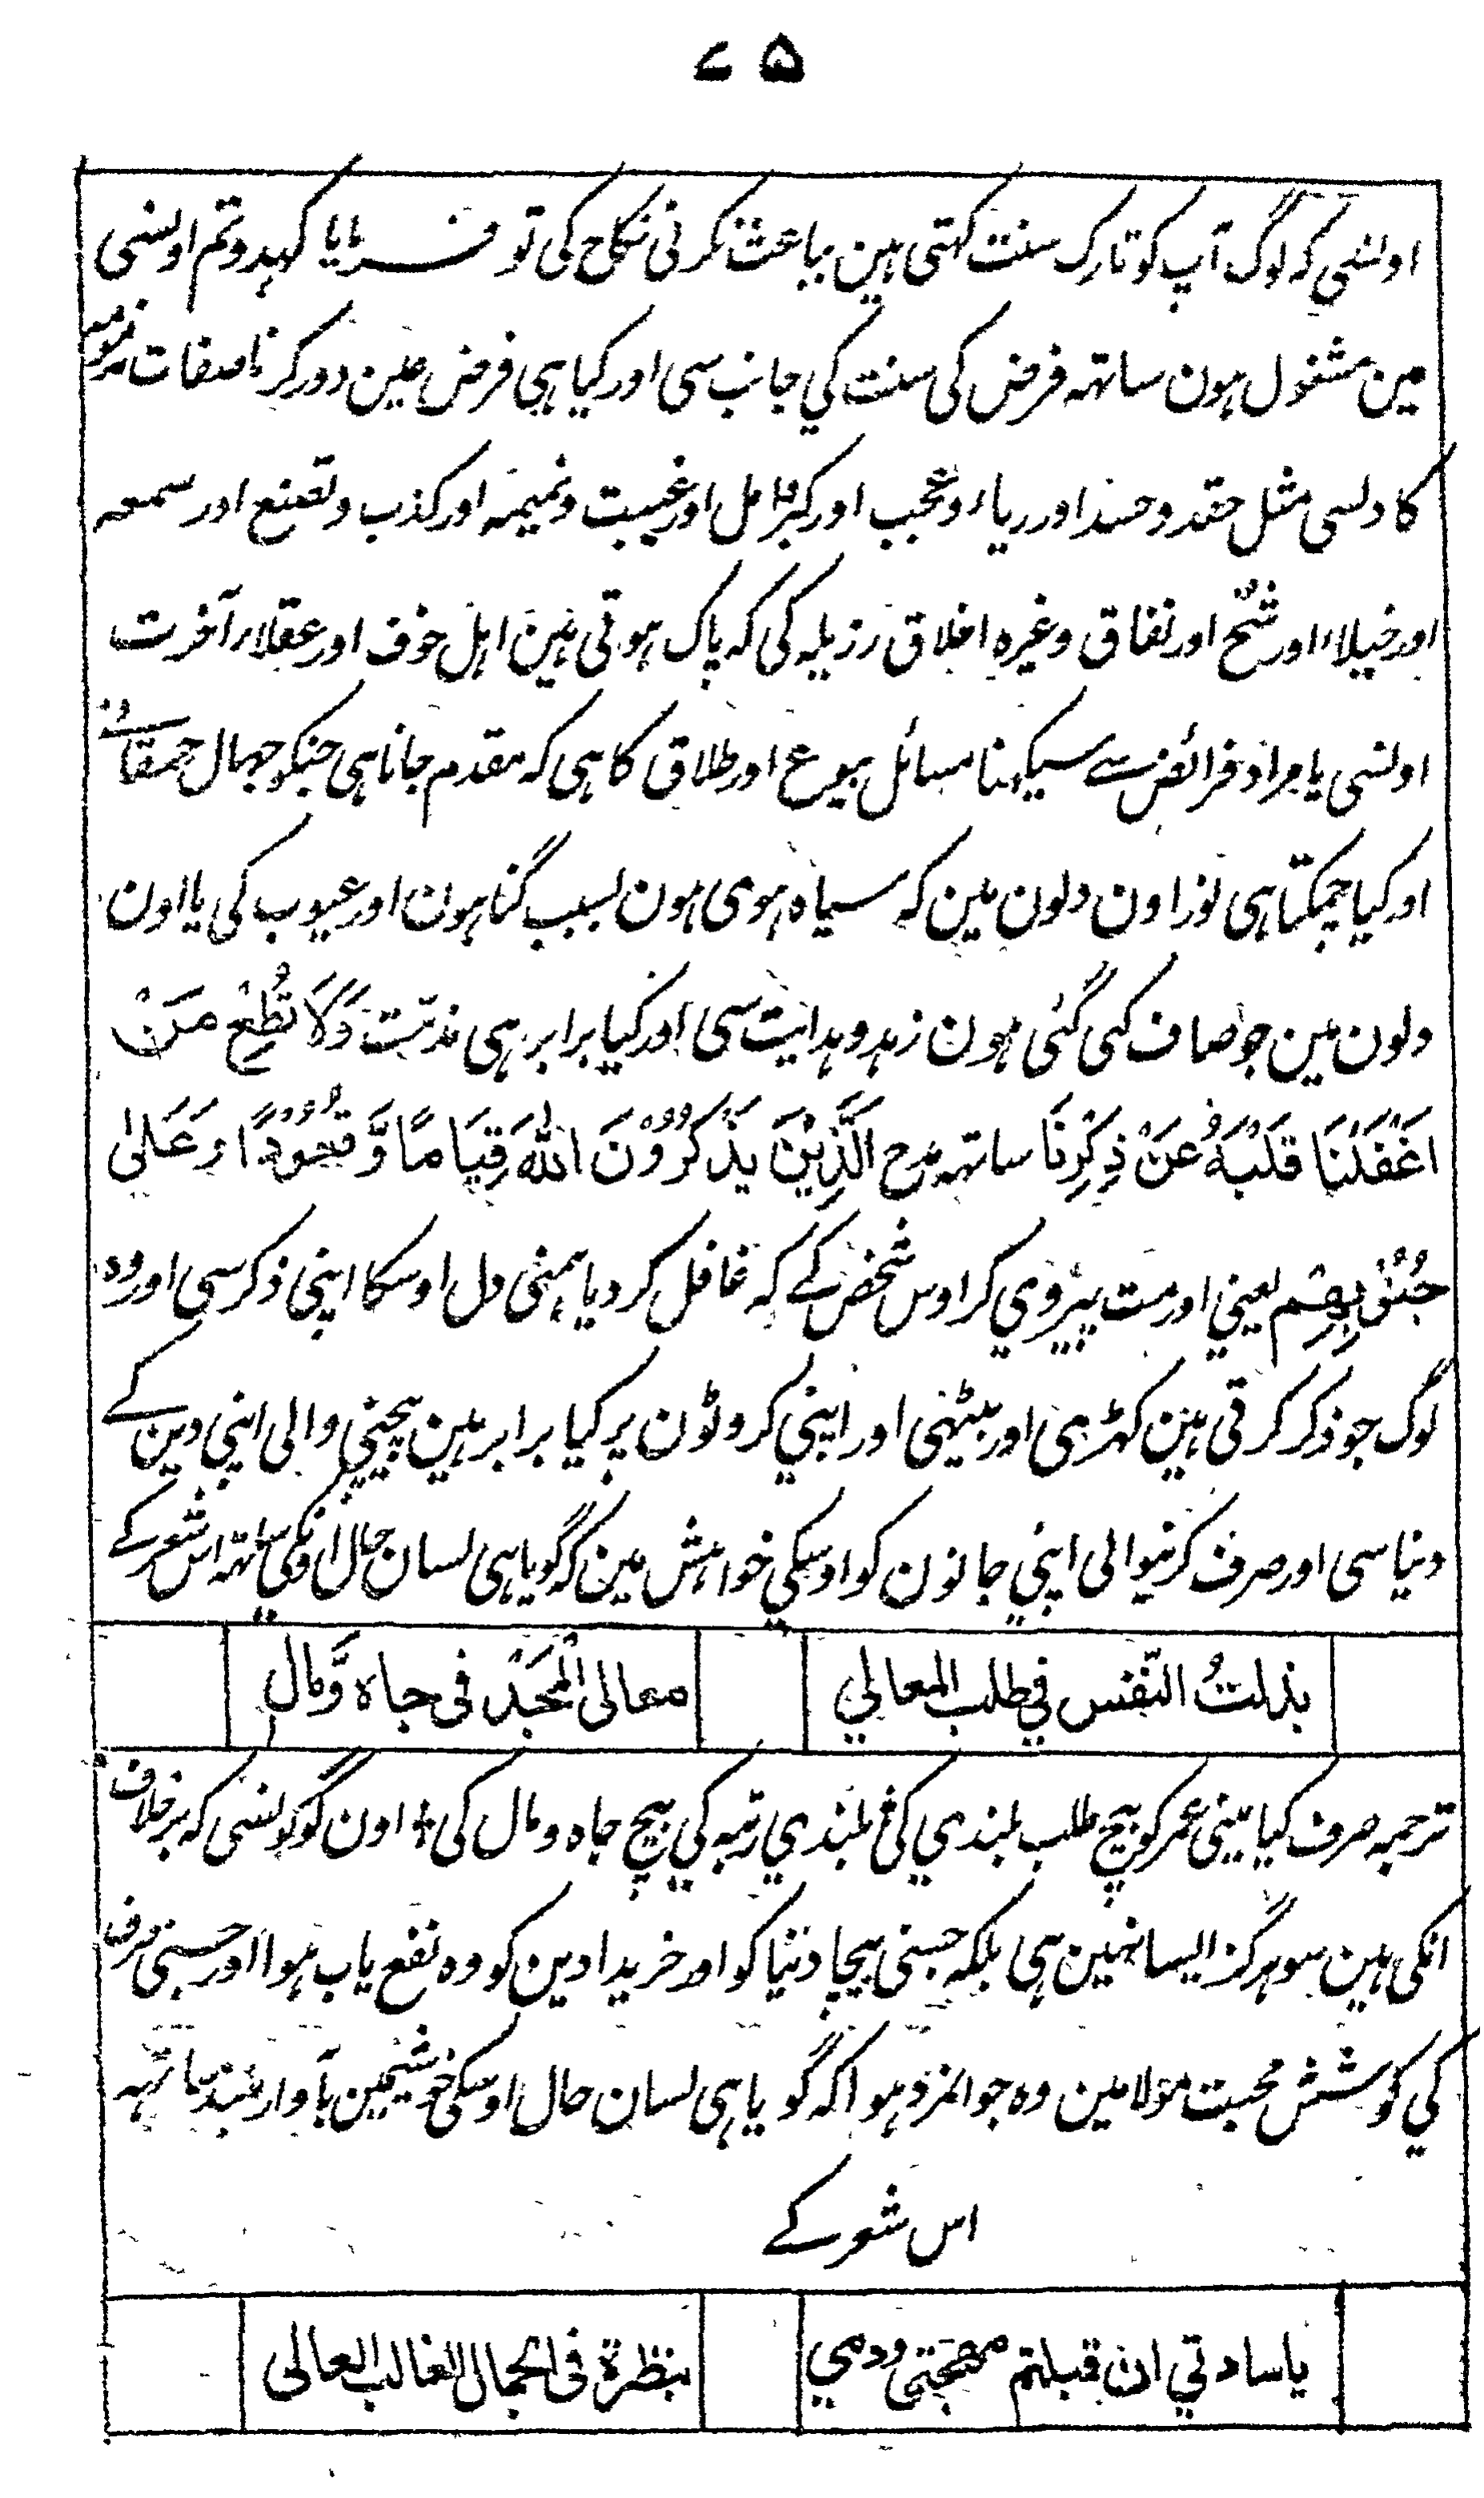 ۷۵
اونسی کہ لوگ آپ کو تارک سنت کہتی ہین بباعث نکرنی نکاح کی تو فرمایا کہدو تم اونسی
مین مشغول ہون ساتھہ فرض کی سنت کي جانب سی اور کیا ہی فرض عین دور کرنا صفات مذمومہ
کا دلسی مثل حقد و حسد اور ریاء و عجب اور کبر امل اور غیبت و نمیمہ اور کذب و تصنع اور سمعہ
اور خیلاء اور شُحّ اور نفاق وغیرہ اخلاق رزیلہ کی کہ پاک ہوتی ہین اہل خوف اور عقلاء آخرت
اونسی یا مراد فرائض سے سیکہنا مسائل بیوع اور طلاق کا ہی کہ مقدم جانا ہی جنکو جہال حمقا نے
اور کیا چمکتا ہی نور اون دلون مین کہ سیاہ ہوی ہون بسبب گناہون اور عیوب کی یا اون
دلون مین جو صاف کی گئی ہون زہد و ہدایت سی اور کیا برابر ہی مذمّت وَلَا تُطِعْ مَنْ
اَغْفَلْنَا قَلْبَهُ عَنْ ذِكْرِنَا ساتھہ مدح الَّذِيْنَ يَذْكُرُوْنَ اللّٰهَ قِيَامًا وَّقُعُوْدًا وَعَلٰى
جُنُوْبِهِمْ یعني اور مت پیروي کر اوس شخص کے کہ غافل کر دیا ہمنی دل اوسکا اپنی ذکر سی اور وہ
لوگ جو ذکر کرتی ہین کہڑہی اور بیٹھی اور اپني کروٹون پر کیا برابر ہین بیچني والی اپنی دین کے
دنیا سی اور صرف کرنیوالی اپني جانون کو اوسکي خواہش مین کہ گویا ہی لسان حال اونکي ساتھہ اس شعر کے
بذلتُ النّفس في طلب المعالي معالى الْمَجْد فى جاه وَّمال
ترجمہ صرف کیا مینی عمر کو بیچ طلب بلندي کی بلندي رتبہ کي بیچ جاہ و مال کی اون لوگونسی کہ برخلاف
انکی ہین سو ہرگز ایسا نہین ہی بلکہ جسنی بیچا دنیا کو اور خریدا دین کو وہ نفع یاب ہوا اور جسنی صرف
کي کوشش محبت مولا مین وہ جوانمرد ہوا کہ گویا ہی لسان حال اوسکی خوشیمین بآواز بلند ساتھہ
اس شعر کے
يا سادتي ان قبلتم مهجتى ودمي بنظرة فى الجمال الغالب العالى